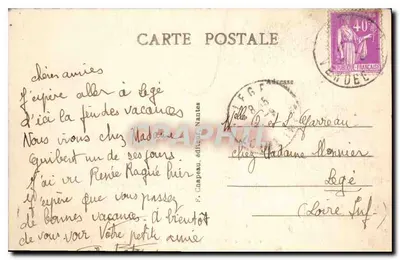 CARTE POSTALE
chères amies
J'espère aller à Legé
d'ici la fin des vacances
Nous vivons chez Madame
Guibert un de ses jours.
J'ai vu Renée Ragué hier
j'espère que vous passez
de bonnes vacances. A bientôt
de vous voir Votre petite amie
P. Chapeau, éditeur, Nantes
Adresse
LEGE
40c
VENDEE
Melles O. et S. Garreau
chez Madame Monnier
Legé
(Loire Inf.)